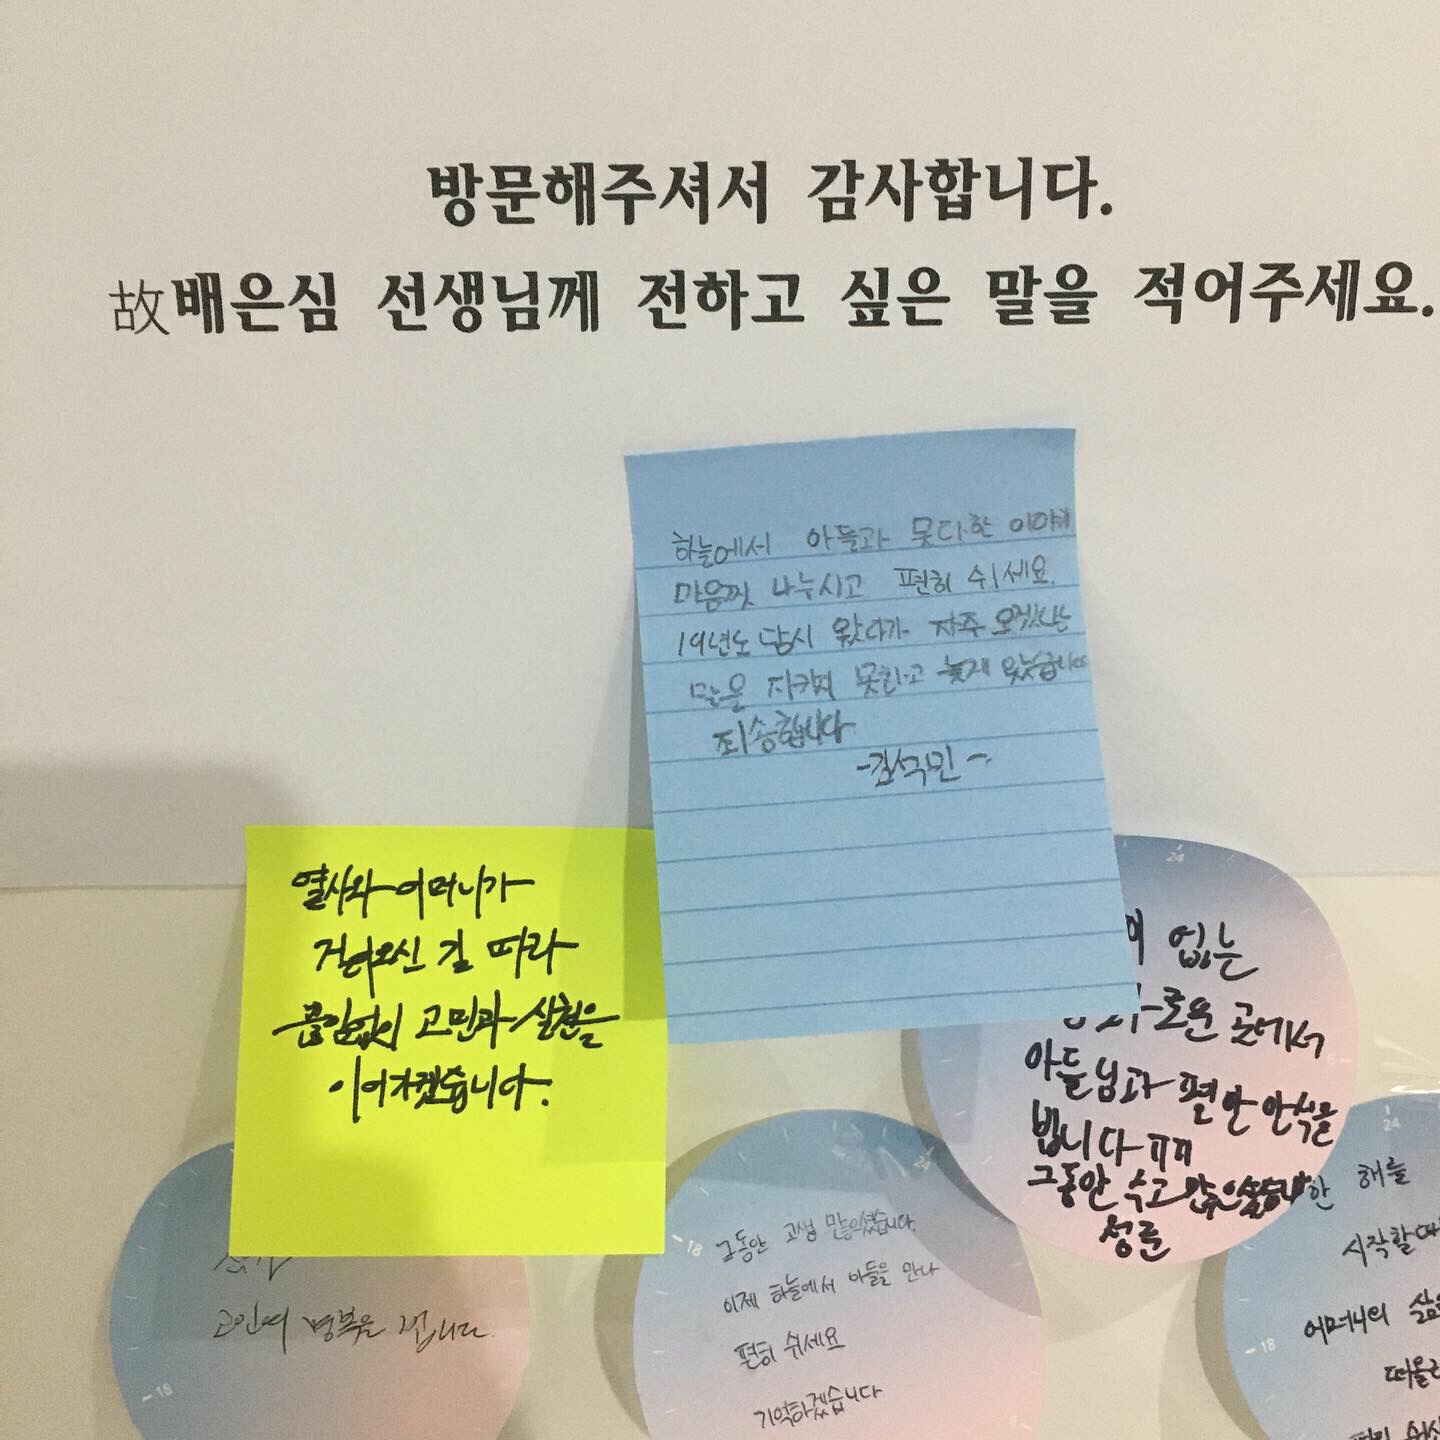 방문해주셔서 감사합니다.
故배은심 선생님께 전하고 싶은 말을 적어주세요.
하늘에서 아들과 못다한 이야기
마음껏 나누시고 편히 쉬세요.
19년도 답시 왔다가 자주 오겠다는
말은 지키지 못하고 늦게 왔습니다
죄송합니다
-김석민-
열사와 어머니가
걸어오신 길 따라
끊임없이 고민과 실천을
이어가겠습니다.
없는
로운 곳에서
아들님과 편안 안식을
빕니다 ㅠㅠ
그동안 수고 많으셨습니다
정준
고인의 명복을 빕니다.
18
24
18
그동안 고생 많으셨습니다.
이제 하늘에서 아들을 만나
편히 쉬세요
기억하겠습니다
24
18
한 해를
시작할 때
어머니의 삶을
떠올리
편히 쉬시